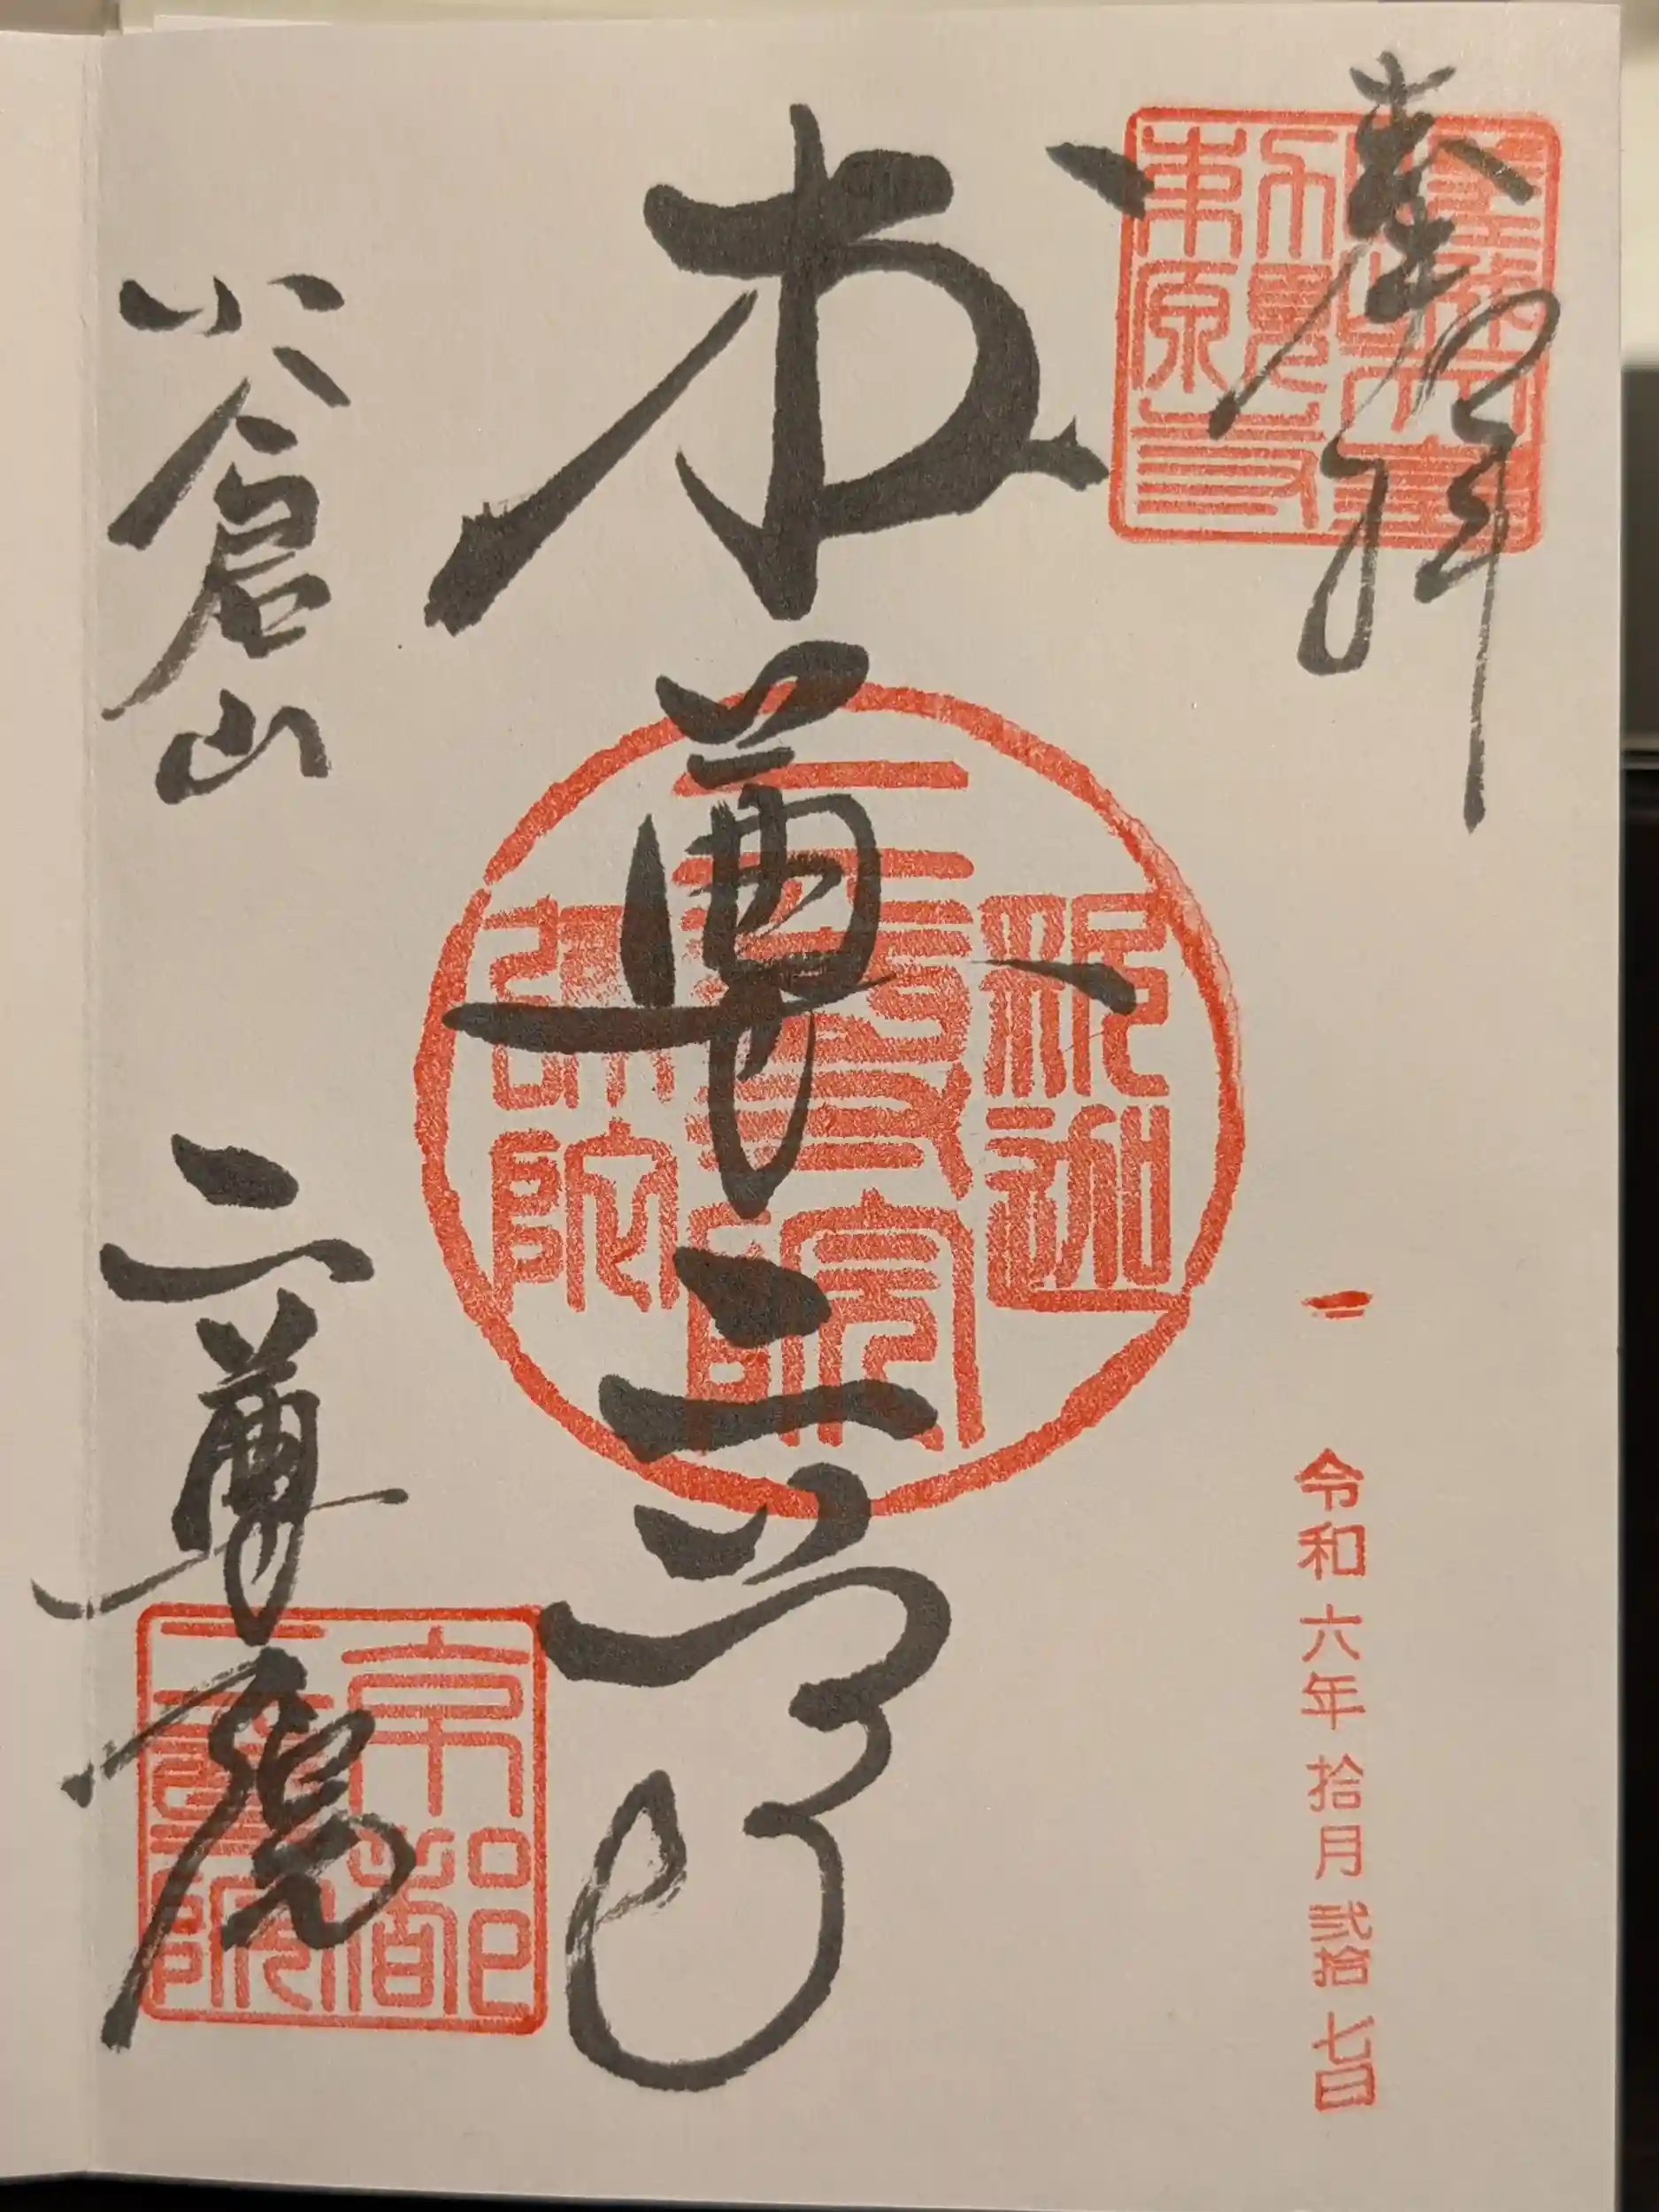 奉拝
令和六年拾月弐拾七日
本尊二尊
釈迦
二尊院
弥陀
小倉山
二尊院
京都
二尊院